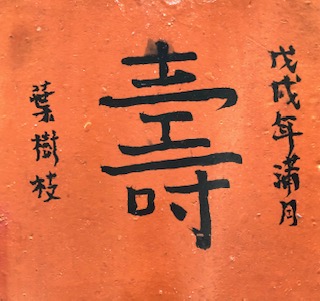 戊戌年蒲月
壽
葉樹枝